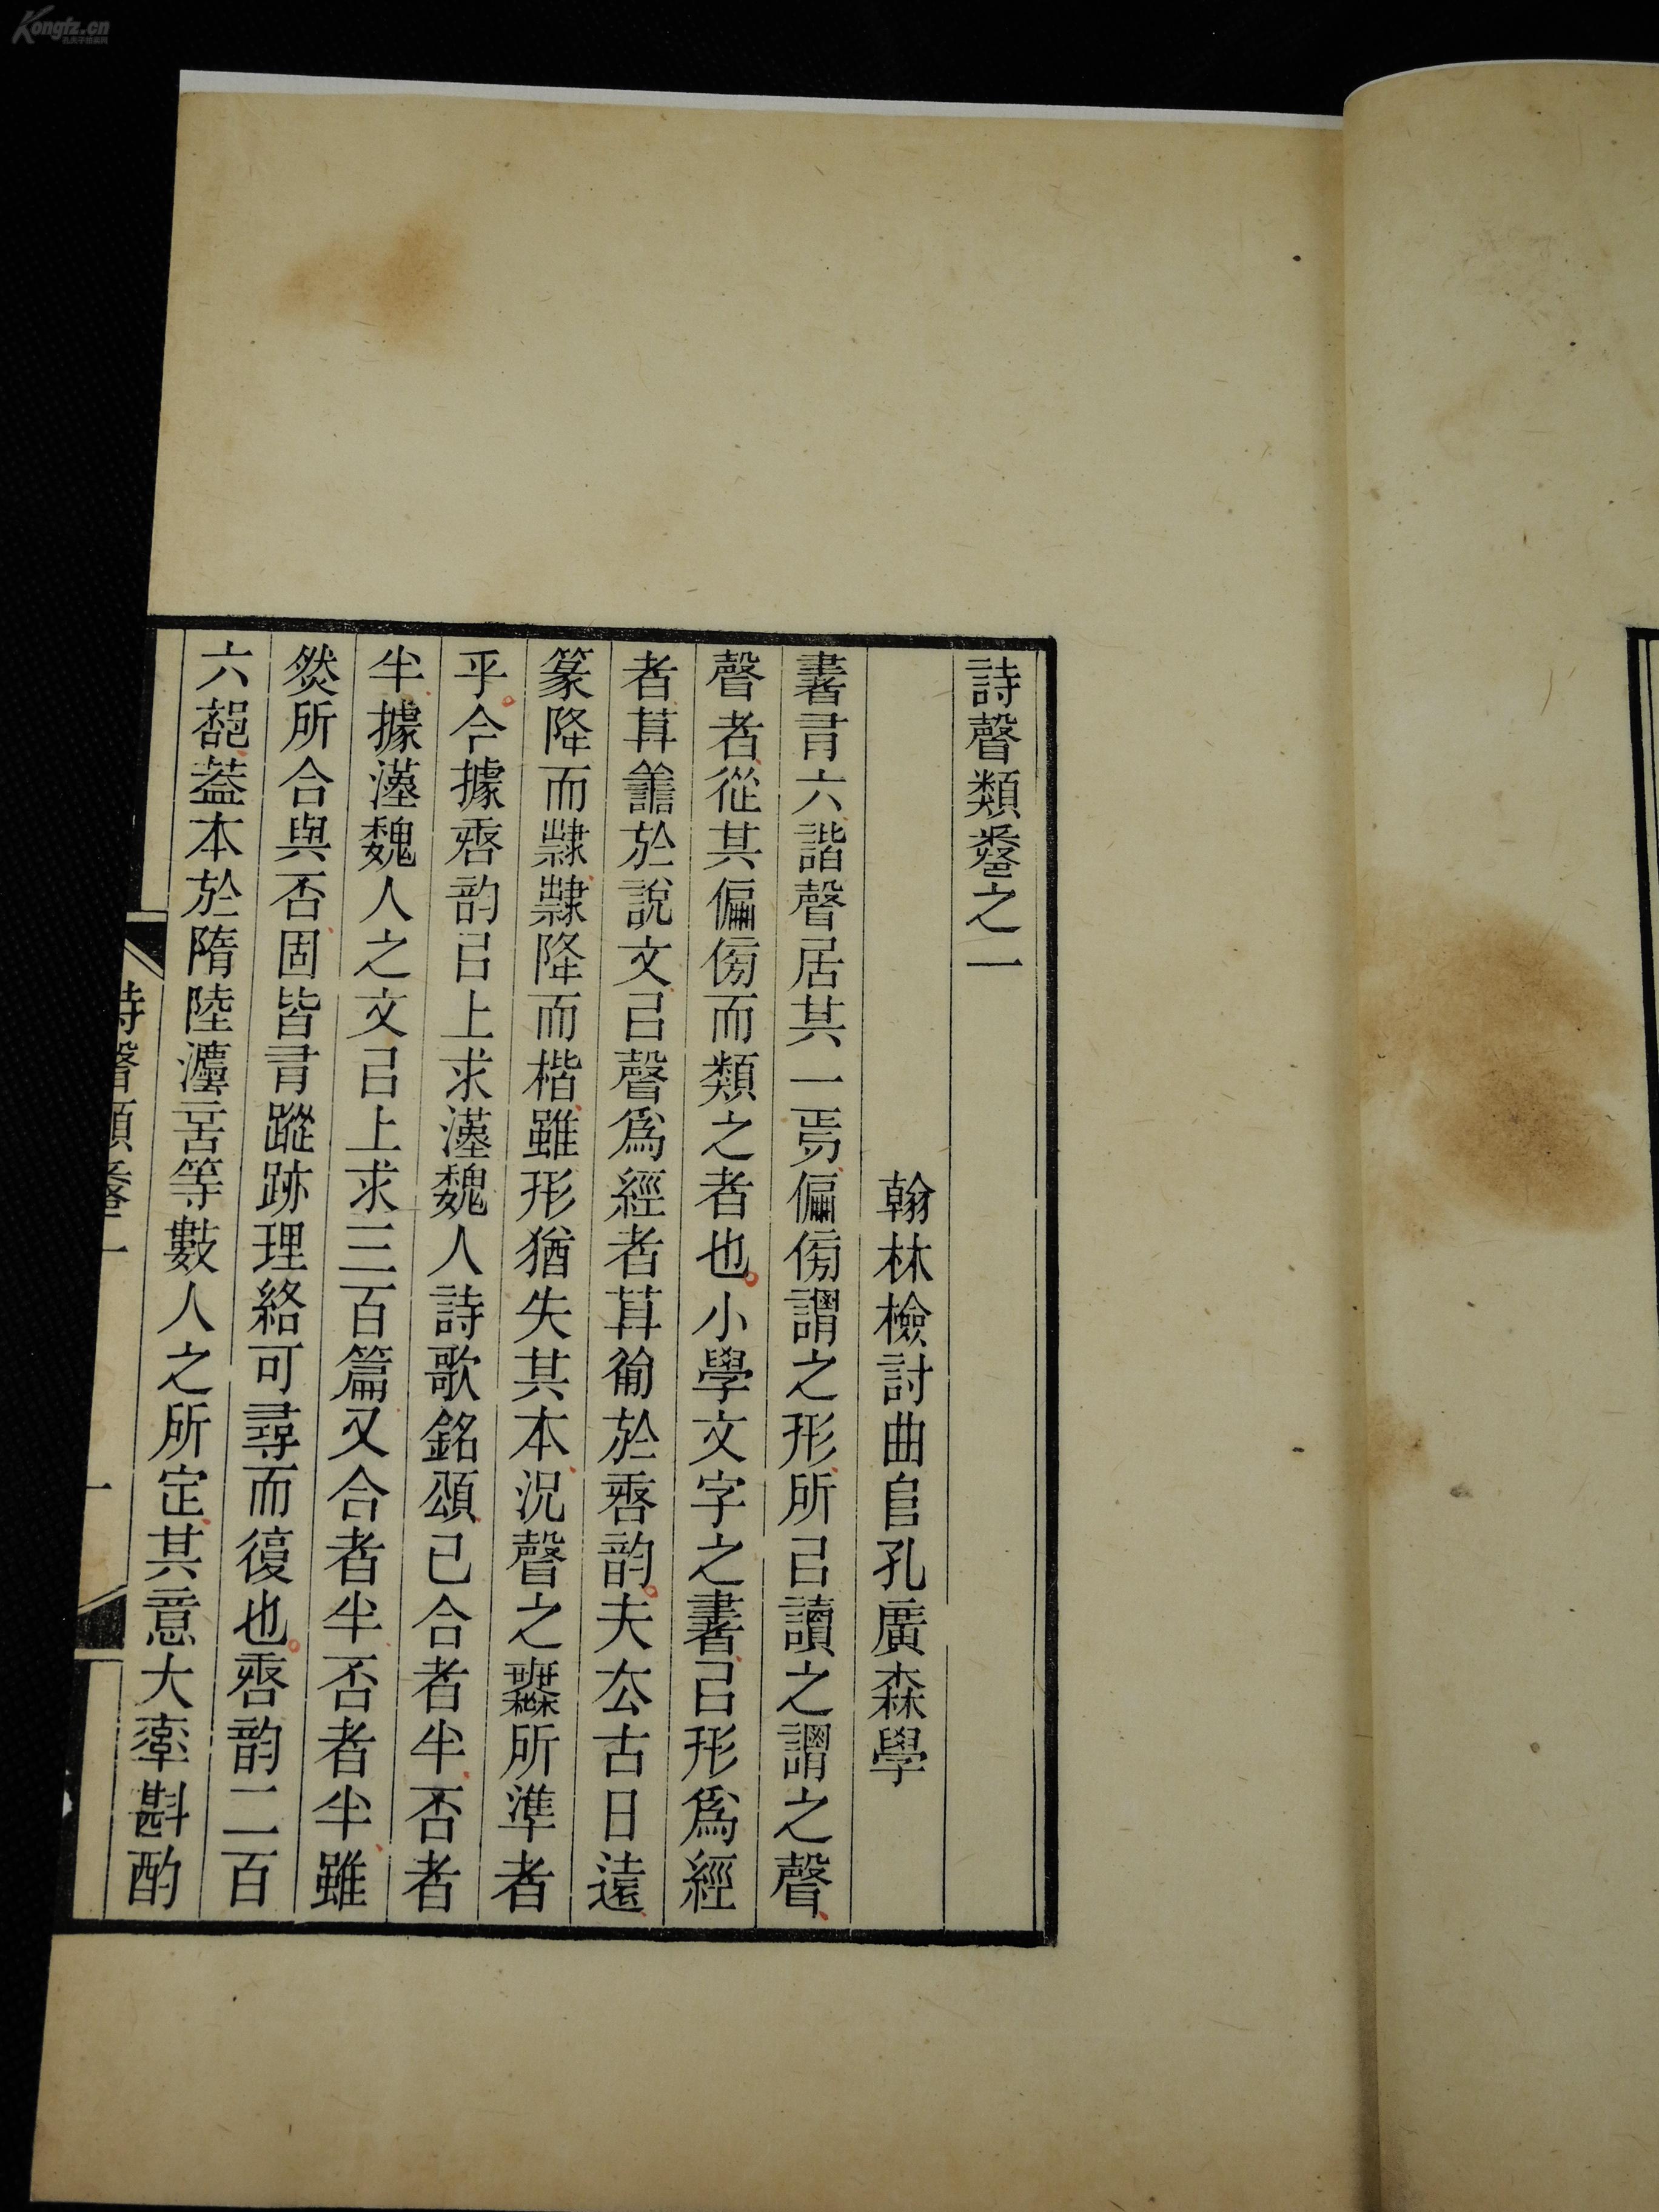 詩聲類卷之一
翰林檢討曲𨸏孔廣森學
書𠕎六諧聲居其一焉偏傍謂之形所㠯讀之謂之聲
聲者從其偏傍而類之者也小學文字之書㠯形爲經
者莫譱於說文㠯聲爲經者莫𤰇於唐韵夫厺古日遠
篆降而隸隸降而楷雖形猶失其本況聲之無所準者
乎今據唐韵㠯上求漢魏人詩歌銘頌已合者半否者
半據漢魏人之文㠯上求三百篇又合者半否者半雖
然所合與否固皆有蹤跡理絡可尋而復也唐韵二百
六部蓋本於隋陸灋言等數人之所定其意大率斟酌
詩聲類卷一
一
Kongfz.cn